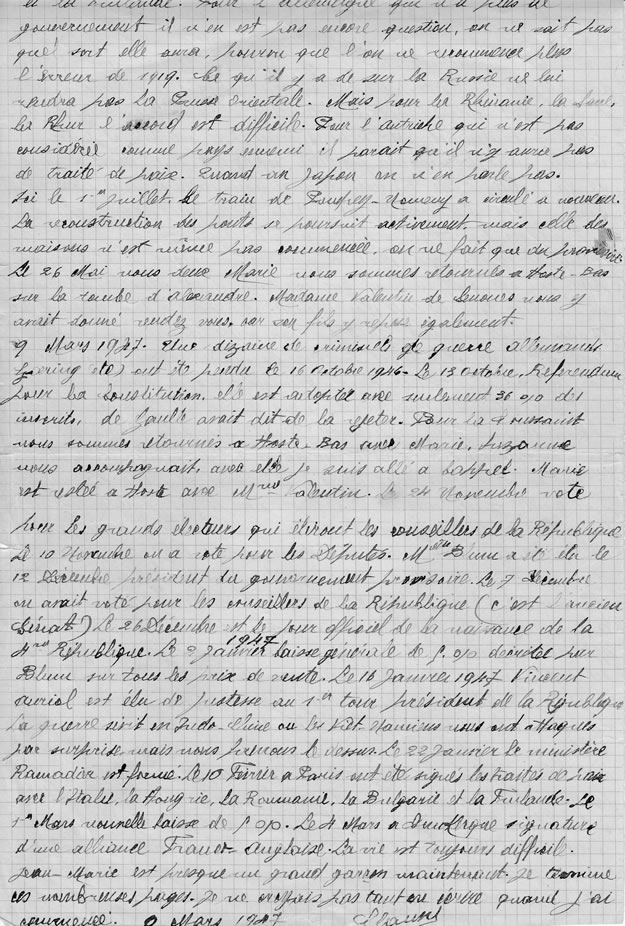 et la Finlande. Pour l'allemagne qui n'a plus de
gouvernement il n'en est pas encore question, on ne sait pas
quel sort elle aura, pourvu que l'on ne recommence plus
l'erreur de 1919. Ce qu'il y a de sur la Russie ne lui
rendra pas la Prusse Orientale. Mais pour la Rhénanie, la Sarre,
la Rhur l'accord est difficile. Pour l'autriche qui n'est pas
considérée comme pays ennemi il parait qu'il n'y aura pas
de traité de paix. Quand au Japon on n'en parle pas.
Ici le 1er juillet le train de Nomeny a circulé a nouveau.
La reconstruction des ponts se poursuit activement, mais celle des
maisons n'est même pas commencée, on ne fait que du provisoire.
Le 26 Mai nous deux Marie nous sommes retournés a Hoste-Bas
sur la tombe d'alexandre. Madame Valentin de nous y
avait donné rendez vous, car son fils y repose également.
9 Mars 1947. Une dizaine de criminels de guerre allemands
(Goering etc) ont été pendu le 16 Octobre 1946. Le 13 Octobre, Referendum
pour la Constitution, elle est adoptée avec seulement 36 %o des
inscrits, de Gaulle avait dit de la rejeter. Pour la Toussaint
nous sommes retournés a Hoste-Bas avec Marie, Suzanne
nous accompagnait, avec elle je suis allé a . Marie
est restée a Hoste avec Mme Valentin. Le 24 Novembre vote
pour les grands électeurs qui éliront les conseillers de la République
Le 10 Novembre on a voté pour les Députés. Blum a été élu le
12 Décembre président du gouvernement provisoire. Le 7 Décembre
on avait voté pour les conseillers de la République (c'est l'ancien
Sénat) Le 26 Décembre est le jour officiel de la naissance de la
4me République. Le 2 Janvier 1947 baisse générale de 5 %o décrétée par
Blum sur tous les prix de vente. Le 16 Janvier 1947 Vincent
auriol est élu de justesse au 1er tour président de la République
La guerre sévit en Indo-Chine ou les Viet-Namiens nous ont attaqués
par surprise mais nous prenons le dessus. Le 22 Janvier le ministère
Ramadier est formé. Le 10 Février a Paris ont été signés les traités de paix
avec l'Italie, la Hongrie, la Roumanie, la Bulgarie et la Finlande. Le
1er Mars nouvelle baisse de 5 %o. Le 4 Mars a Dunkerque signature
d'une alliance Franco-anglaise. La vie est toujours difficile.
Jean-Marie est presque un grand garçon maintenant. Je termine
ces nombreuses pages. Je ne croyais pas tant en écrire quand j'ai
commencé. 9 Mars 1947